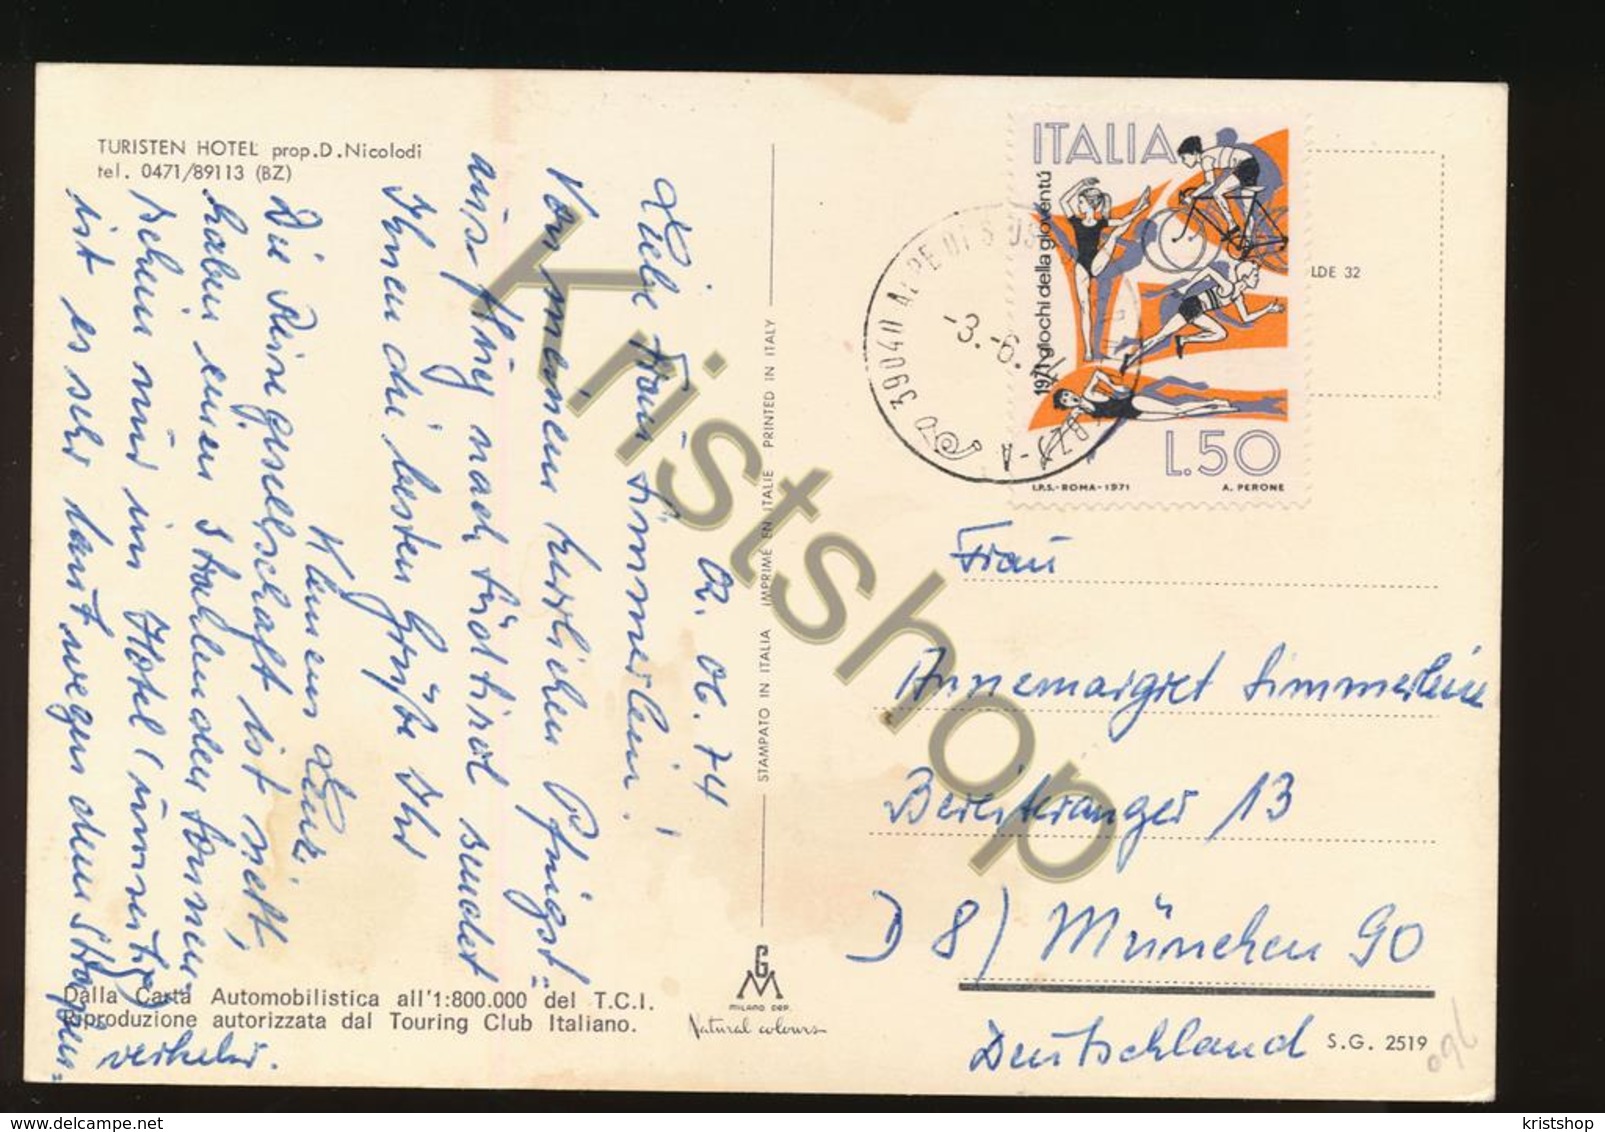 TURISTEN HOTEL prop.D.Nicolodi
tel. 0471/89113 (BZ)
02. 06. 74
Liebe Frau Simmerlein!
Von meinem kurzlichen Pfingst=
ausflug nach Südtirol sendet
Ihnen die besten Grüße Ihr
Klemens
Die Reisegesellschaft ist nett,
haben einen strahlenden Sonnen=
schein nur im Hotel (umseitig)
ist es sehr laut wegen dem Straßen=
verkehr.
Dalla Carta Automobilistica all'1:800.000 del T.C.I.
Riproduzione autorizzata dal Touring Club Italiano.
STAMPATO IN ITALIA IMPRIMÉ EN ITALIE PRINTED IN ITALY
G
M
MILANO DEP.
Natural colours
ITALIA
1971 giochi della gioventù
L.50
I.P.S.-ROMA-1971 A. PERONE
39040 ALPE DI SIUSI
-3.-6.
LDE 32
Frau
Annemargret Simmerlein
Bereiteranger 13
D 8) München 90
Deutschland
S.G. 2519
Kristshop
delcampe.net
kristshop